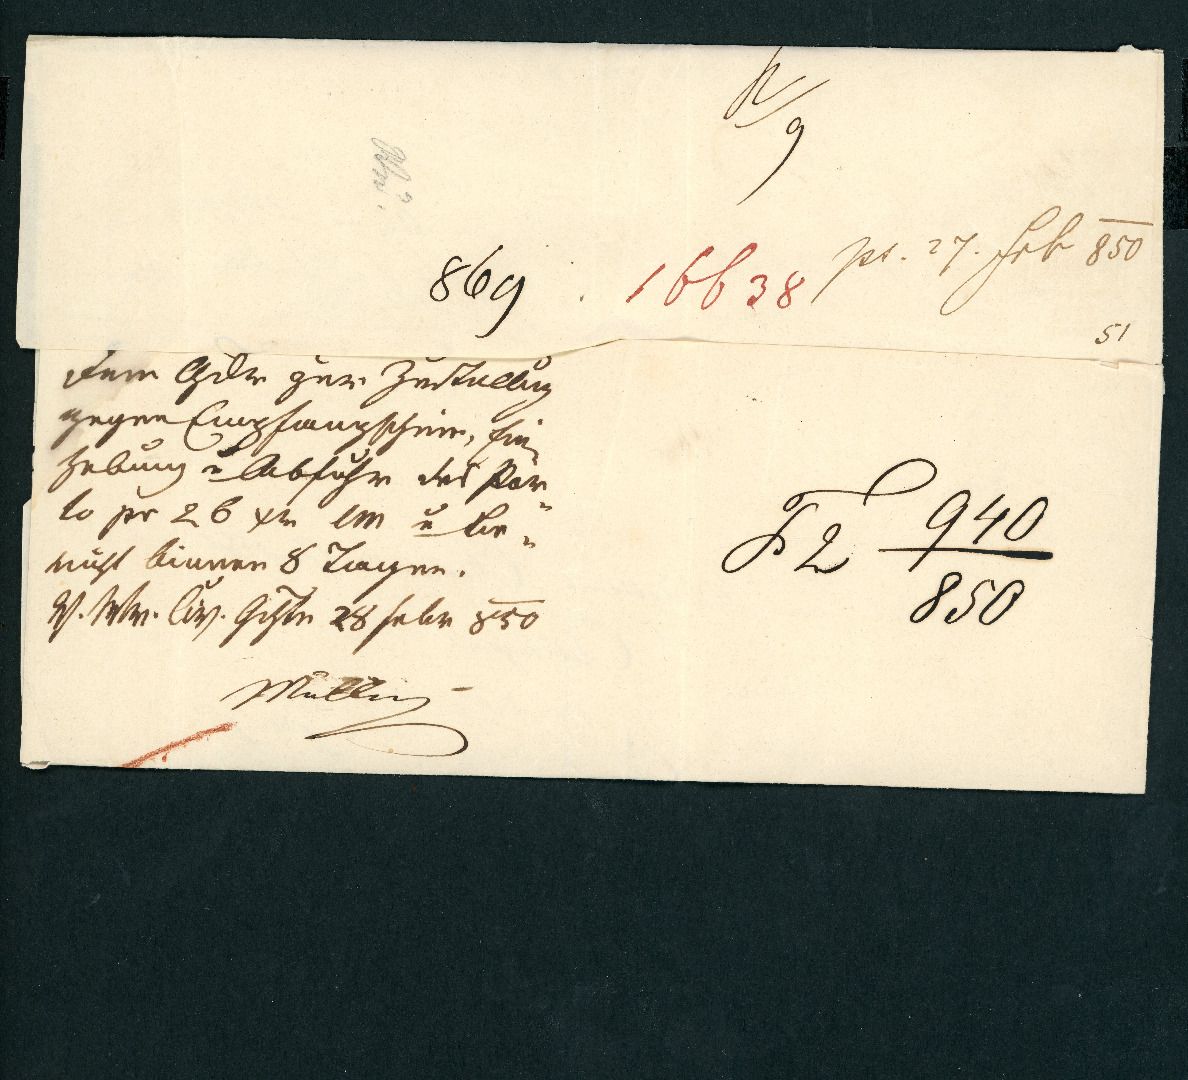 9
869
16638
ps. 27. Feb 850
51
Dem Gdr zur Zustellung
gegen Empfangschein, Ein
hebung u Abfuhr des Por
to pr 26 xr CM u Be
richt binnen 8 Tagen.
28 Febr 850
Müller
F 2 940
850